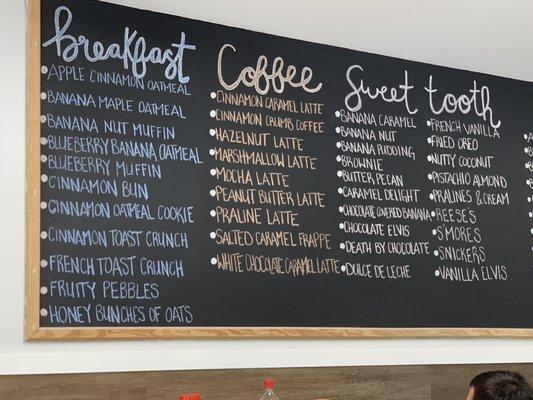 Breakfast
APPLE CINNAMON OATMEAL
BANANA MAPLE OATMEAL
BANANA NUT MUFFIN
BLUEBERRY BANANA OATMEAL
BLUEBERRY MUFFIN
CINNAMON BUN
CINNAMON OATMEAL COOKIE
CINNAMON TOAST CRUNCH
FRENCH TOAST CRUNCH
FRUITY PEBBLES
HONEY BUNCHES OF OATS
Coffee
CINNAMON CARAMEL LATTE
CINNAMON CRUMBS COFFEE
HAZELNUT LATTE
MARSHMALLOW LATTE
MOCHA LATTE
PEANUT BUTTER LATTE
PRALINE LATTE
SALTED CARAMEL FRAPPE
WHITE CHOCOLATE CARAMEL LATTE
Sweet tooth
BANANA CARAMEL
BANANA NUT
BANANA PUDDING
BROWNIE
BUTTER PECAN
CARAMEL DELIGHT
CHOCOLATE COVERED BANANA
CHOCOLATE ELVIS
DEATH BY CHOCOLATE
DULCE DE LECHE
FRENCH VANILLA
FRIED OREO
NUTTY COCONUT
PISTACHIO ALMOND
PRALINES & CREAM
REESE'S
S'MORES
SNICKERS
VANILLA ELVIS